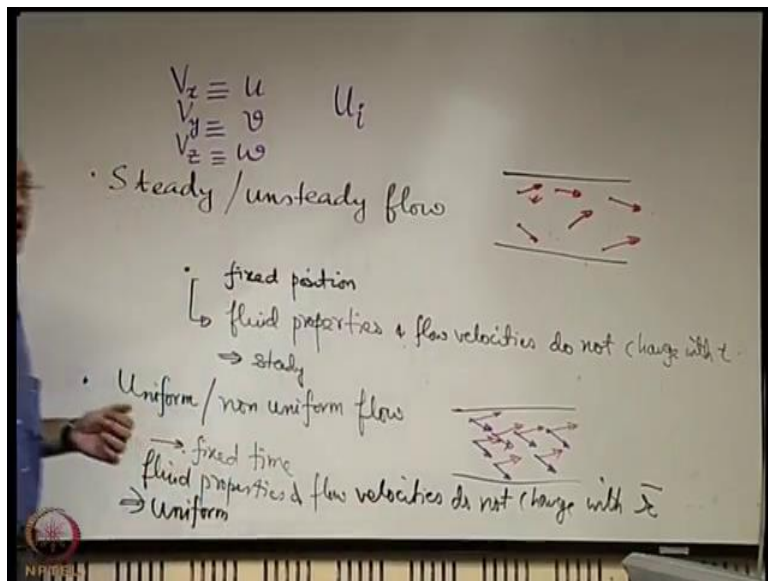 Vx ≡ u
Vy ≡ v
Vz ≡ w
Ui
• Steady / unsteady flow
• fixed position
↳ fluid properties & flow velocities do not change with t.
⇒ steady
• Uniform / non uniform flow
→ fixed time
fluid properties & flow velocities do not change with x̄
⇒ Uniform
NPTEL